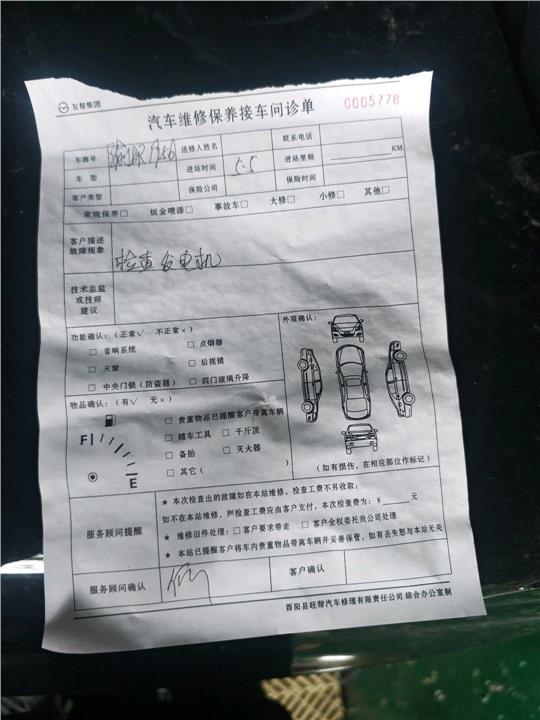 友帮集团
汽车维修保养接车问诊单
0005778
车牌号 送修人姓名 联系电话
车型 进站时间 5.5 进站里程 KM
客户类型 保险公司 保险时间
常规保养□ 钣金喷漆□ 事故车□ 大修□ 小修□ 其他□
客户描述
故障现象
检查发电机
技术总监
或技师
建议
功能确认：（正常√ 不正常×）
□ 音响系统 □ 点烟器
□ 天窗 □ 后视镜
□ 中央门锁（防盗器） □ 四门玻璃升降
外观确认：
物品确认：（有√ 无×）
□ 贵重物品已提醒客户带离车辆
□ 随车工具 □ 千斤顶
□ 备胎 □ 灭火器
□ 其它（ ）
F
E
（如有损伤，在相应部位作标记）
服务顾问提醒
★ 本次检查出的故障如在本站维修，检查工费不另收取；
如不在本站维修，则检查工费应由客户支付，本次检查费为：￥____元
★ 维修旧件处理：□ 客户要求带走 □ 客户全权委托我公司处理
★ 本站已提醒客户将车内贵重物品带离车辆并妥善保管，如有丢失恕与本站无关
服务顾问确认 客户确认
酉阳县旺帮汽车修理有限责任公司 综合办公室制